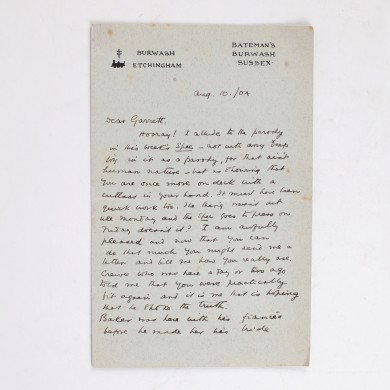 BURWASH
ETCHINGHAM
BATEMAN'S
BURWASH
SUSSEX
Aug. 10./07
Dear Garrett.
Hooray! I allude to the parody
in this week's Spec - not with any
in it as a parody, for that ain't
human nature - but as showing that
you are once more on deck with a
cutlass in your hand. It must have been
quick work too. The thing wasn't out
till Monday and the Spec goes to press on
doesn't it? I am awfully
pleased and now that you can
do that much you might send me a
letter and tell me how you really are.
who was here a day or two ago
told me that you were practically
fit again and it is me that is hoping
that he spoke the truth.
Baker was here with his fiancée
before he made her his bride